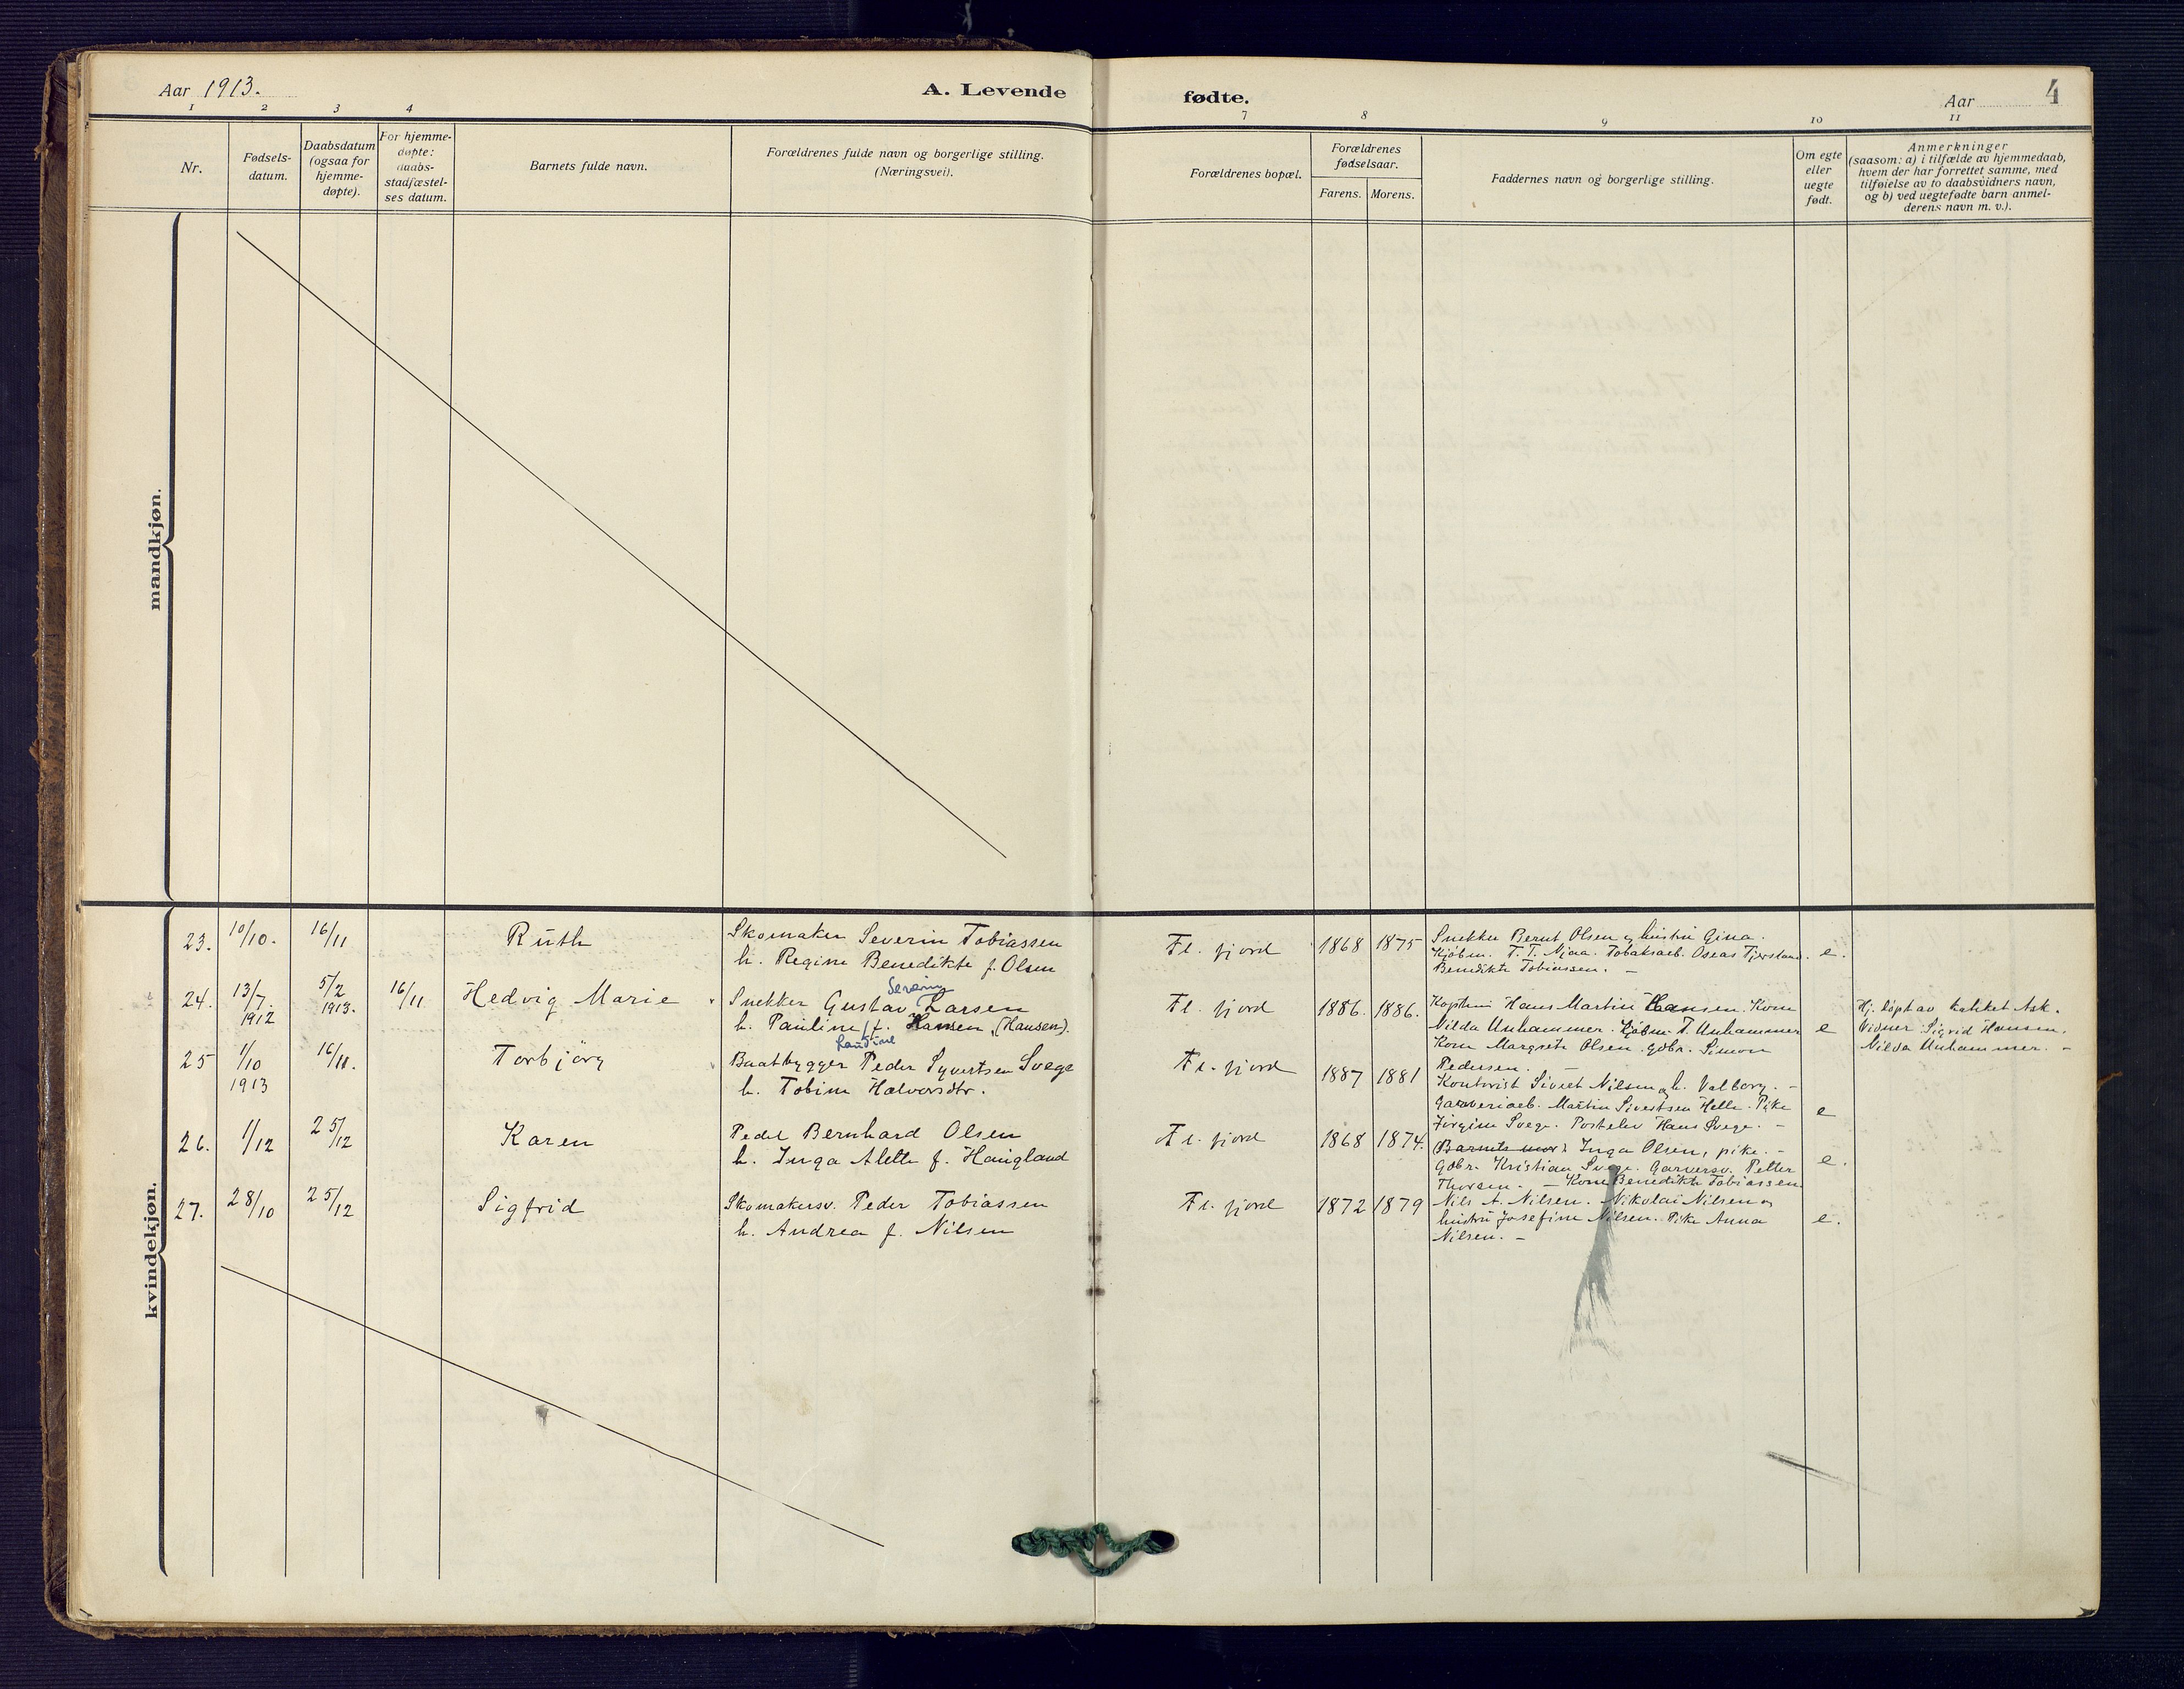 Aar 1913.
A. Levende
fødte.
Aar
4
1 2 3 4
7 8 9 10 11
Nr.
Fødsels-
datum.
Daabsdatum
(ogsaa for
hjemme-
døpte).
For hjemme-
døpte:
daabs-
stadfæstel-
ses datum.
Barnets fulde navn.
Forældrenes fulde navn og borgerlige stilling.
(Næringsvei).
Forældrenes bopæl.
Forældrenes
fødselsaar.
Farens. Morens.
Faddernes navn og borgerlige stilling.
Om egte
eller
uegte
født.
Anmerkninger
(saasom: a) i tilfælde av hjemmedaab,
hvem der har forrettet samme, med
tilføielse av to daabsvidners navn,
og b) ved uegtefødte barn anmel-
derens navn m. v.).
mandkjøn.
kvindekjøn.
23. 10/10. 16/11 Ruth
Skomaker Severin Tobiassen
h. Regine Benedikte f. Olsen
Fl. fjord 1868 1875
Snekker Bernt Olsen og hustru Gina.
Kjøbm. T. T. Njaa. Tobaksarb. Oseas Fjersland.
Benedikte Tobiassen. –
e.
24. 13/7. 1912 5/2 1913. 16/11 Hedvig Marie
Severin
Snekker Gustav Larsen
h. Pauline f. Hansen (Hansen).
Fl. fjord 1886. 1886.
Hans Martin Hansen. Kone
Nilda Unhammer. Kjøbm. T. Unhammer
Kone Margrete Olsen. gdbr. Simon
Pedersen. –
e
Hj. døpt av Ask.
Vidner: Sigrid Hansen.
Nilda Unhammer. –
25 1/10 1913 16/11. Torbjörg
Baatbygger Peder Syvertsen Svege
h. Tobine Halvorsdtr.
Fl. fjord 1887 1881
Kontorist Sivert Nilsen og h. Valborg. –
Garveriarb. Martin Sivertsen Helle. Pike
Jörgine Svege. Postelev Hans Svege. –
e
26. 1/12 25/12 Karen
Pedel Bernhard Olsen
h. Inga Alette f. Haugland
Fl. fjord 1868 1874.
Barnets mor. Inga Olsen, pike. –
Gdbr. Kristian Svege. Garversv. Petter
Thorsen. – Kone Benedikte Tobiassen.
e.
27. 28/10 25/12 Sigfrid
Skomakersv. Peder Tobiassen
h. Andrea f. Nilsen
Fl. fjord 1872 1879
Nils A. Nilsen. Nikolai Nilsen og
hustru Josefine Nilsen. Pike Anna
Nilsen. –
e.